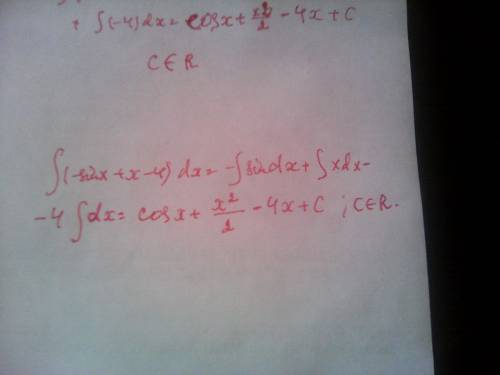 + ∫(-4)dx = cosx + x²/2 - 4x + C
C∈R
∫(-sinx + x - 4) dx = -∫sindx + ∫xdx -
-4∫dx = cosx + x²/2 - 4x + C ; C∈R.